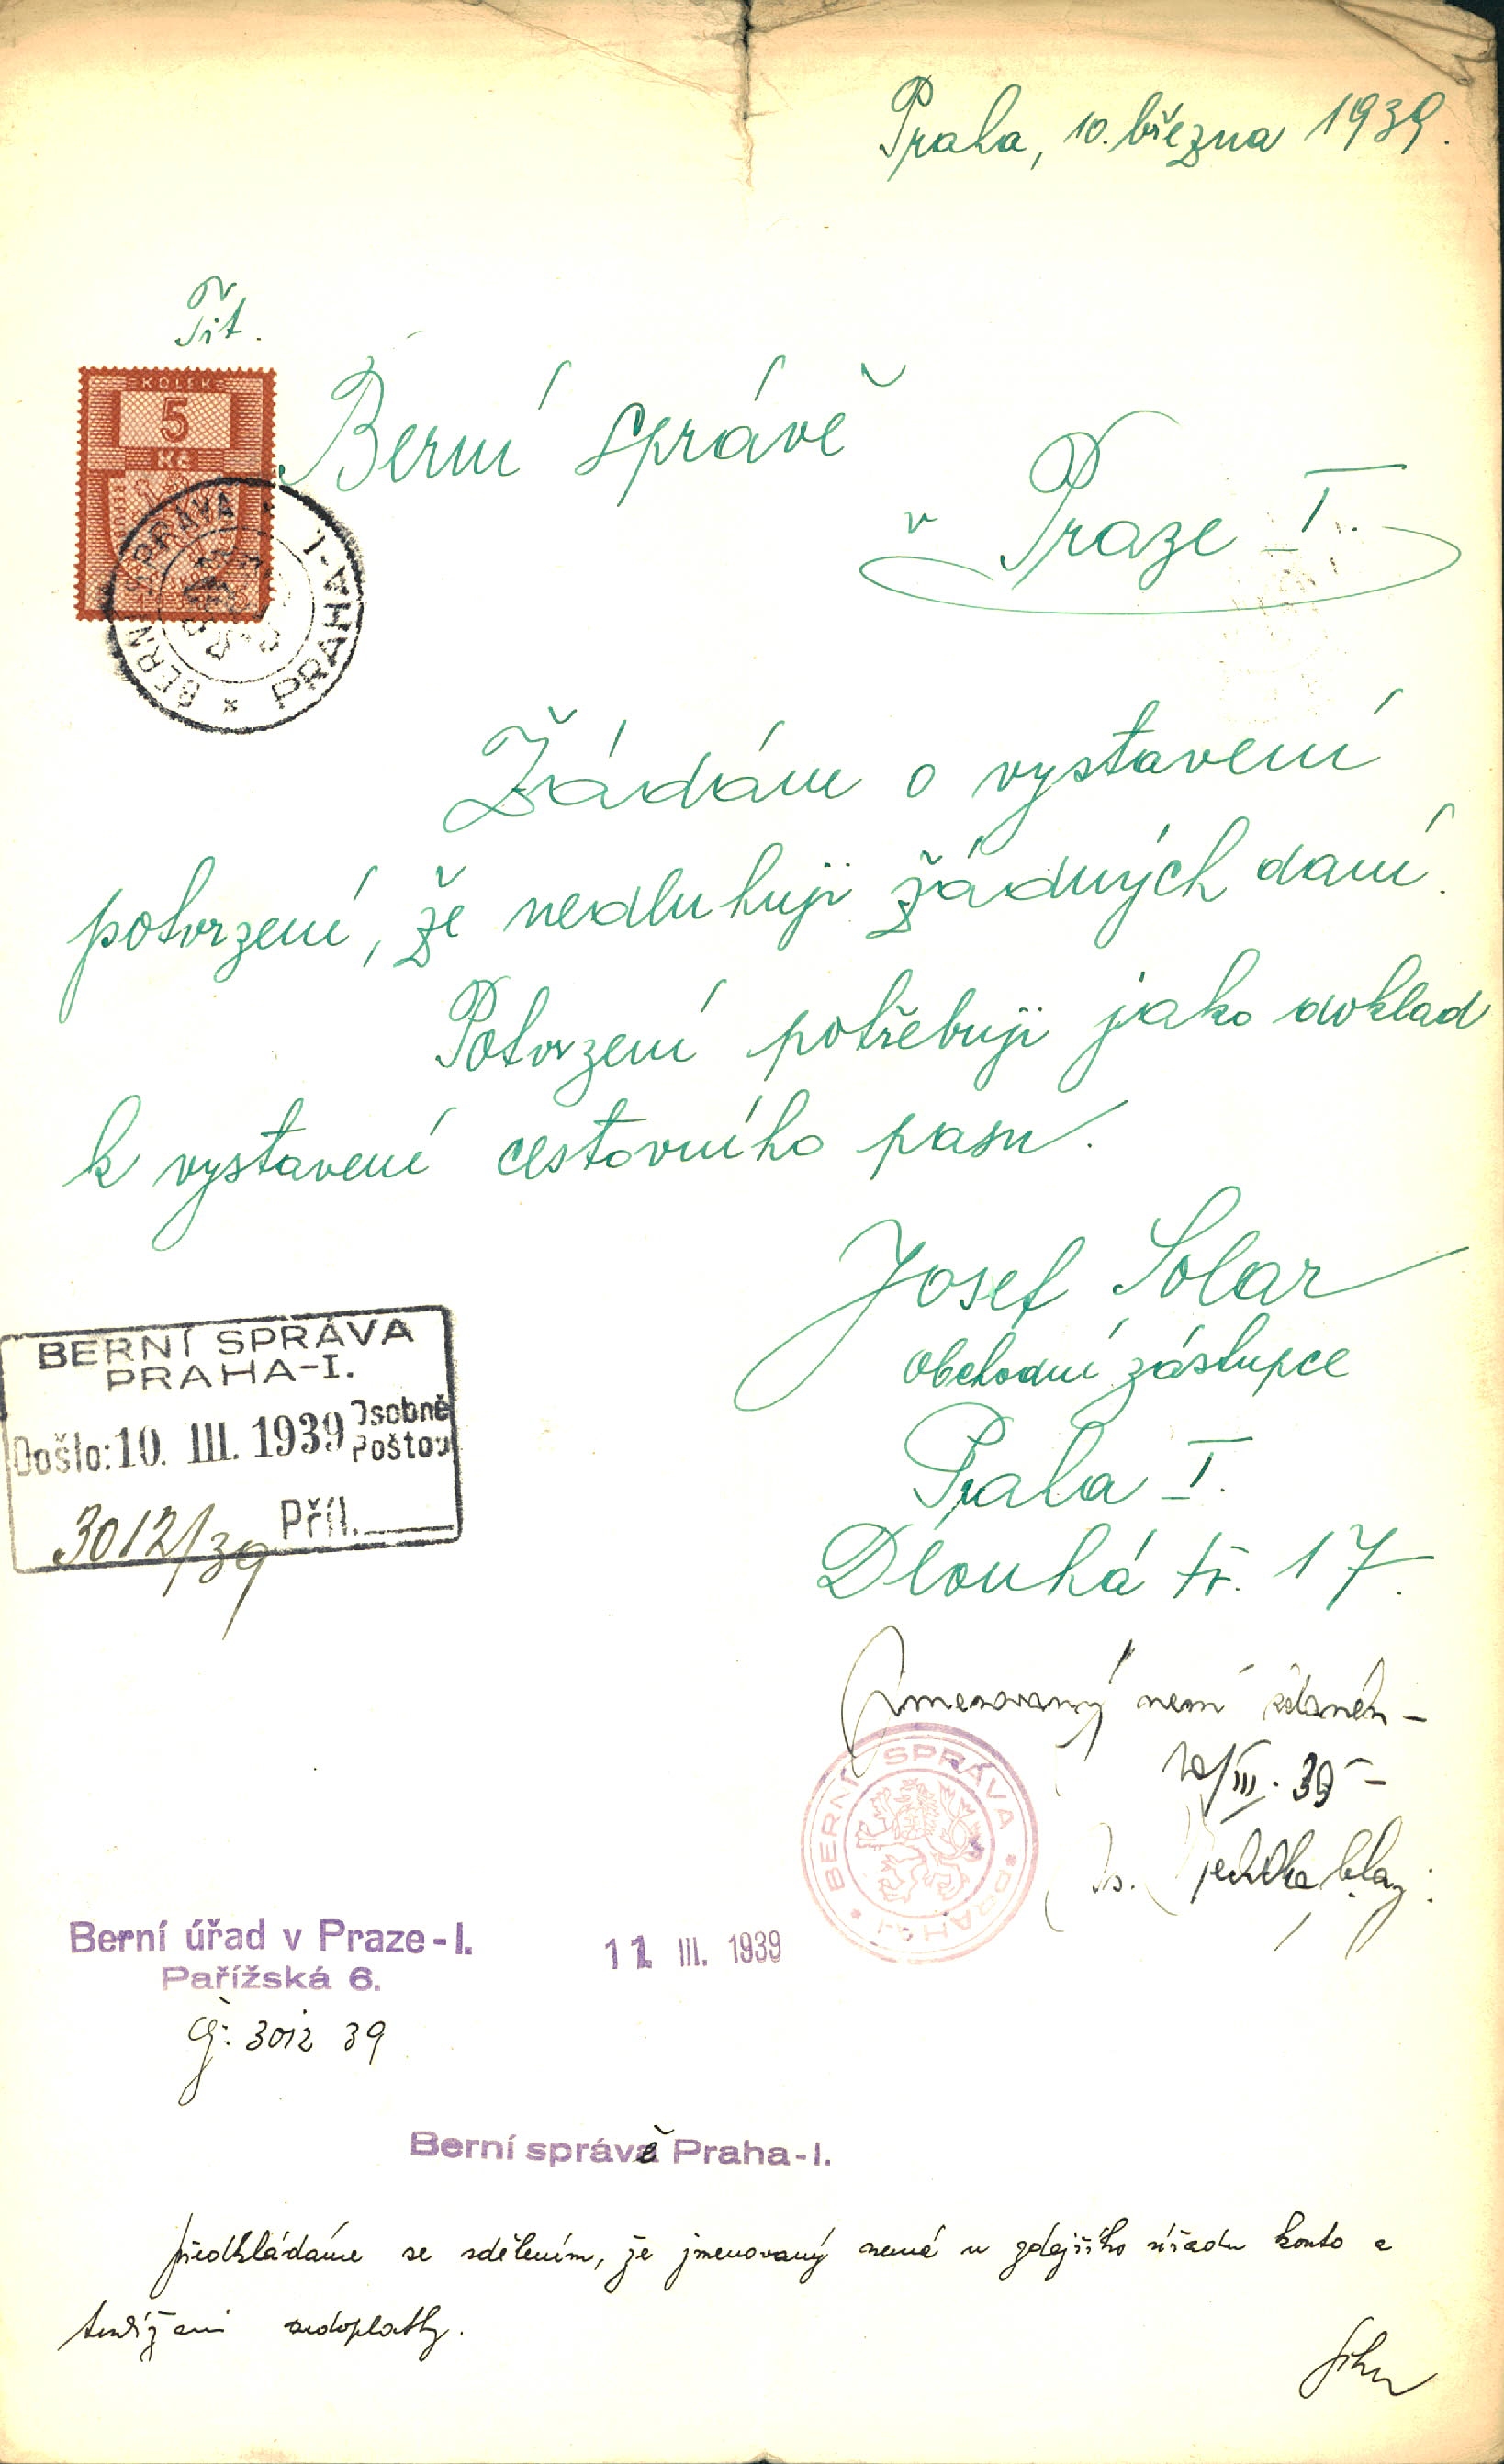 Praha, 10. března 1939.
Tit.
Berní správě
v Praze I.
KOLEK
5
Kč
BERNÍ SPRÁVA PRAHA-I
Žádám o vystavení
potvrzení, že nedluhuji žádných daní.
Potvrzení potřebuji jako doklad
k vystavení cestovního pasu.
Josef Solar
obchodní zástupce
Praha I.
Dlouhá tř. 17.
BERNÍ SPRÁVA
PRAHA-I.
Došlo: 10. III. 1939 Osobně
Poštou
3012/39 Příl.
Jmenovaný není zdaněn –
10/III. 39 –
BERNÍ SPRÁVA * PRAHA-I *
Berní úřad v Praze-I. 11 III. 1939
Pařížská 6.
čj: 3012 39
Berní správě Praha-I.
předkládáme se sdělením, že jmenovaný nemá u zdejšího úřadu konto a
tudíž ani nedoplatky.